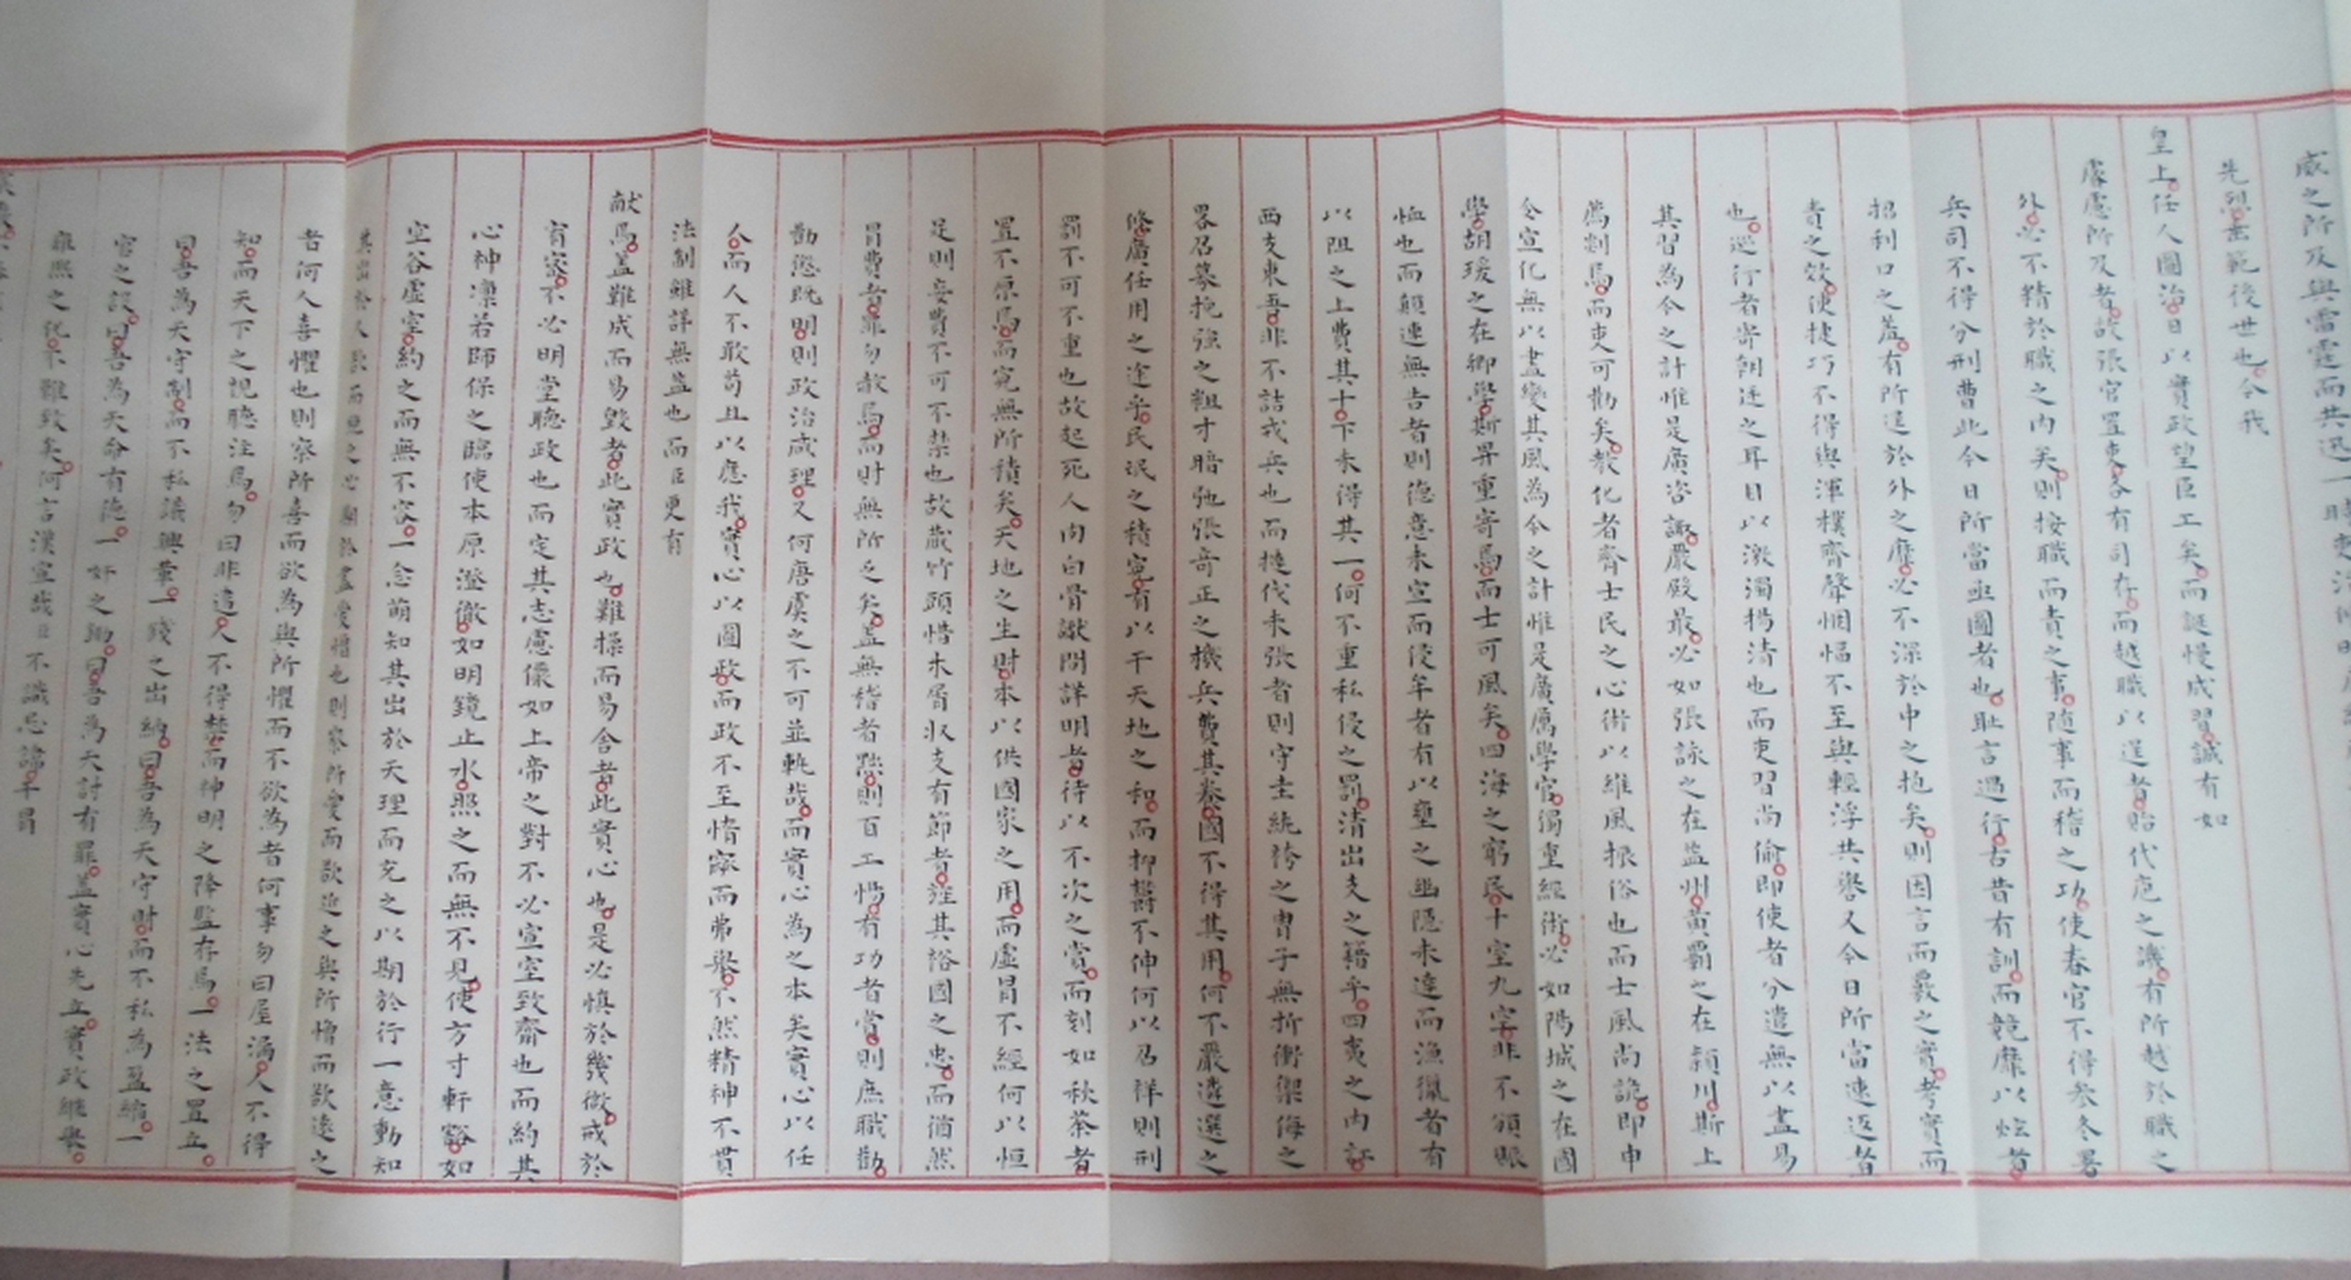 威之所及與雷霆而共迅一時
先烈垂範後世也今我
皇上任人圖治日以實政望臣工矣而誕慢成習誠有如
睿慮所及者故張官置吏各有司存而越職以逞者貽代庖之譏有所越於職之
外必不精於職之內矣則按職而責之事隨事而稽之功使春官不得參冬署
兵司不得分刑曹此今日所當亟圖者也恥言過行古昔有訓而競靡以炫者
招利口之羞有所逞於外之靡必不深於中之抱矣則因言而覈之實考實而
責之效使捷巧不得與渾樸齊聲悃愊不至與輕浮共譽又今日所當速返者
也巡行者寄朝廷之耳目以激濁揚清也而吏習尚偷即使者分遣無以盡易
其習為今之計惟是廣咨諏嚴殿最必如張詠之在益州黃霸之在潁川斯上
薦剡焉而吏可勸矣教化者齊士民之心術以維風振俗也而士風尚詭即申
令宣化無以盡變其風為今之計惟是廣厲學官獨重經術必如陽城之在國
學胡瑗之在鄉學斯畀重寄焉而士可風矣四海之窮民十室九空非不頒賑
恤也而顛連無告者則德意未宣而侵牟者有以壅之幽隱未達而漁獵者有
以阻之上費其十下未得其一何不重私侵之罰清出支之籍乎四夷之內訌
西支東吾非不詰戎兵也而撻伐未張者則守圭紈袴之冑子無折衝禦侮之
畧召募挽強之粗才暗弛張奇正之機兵費其養國不得其用何不嚴遴選之
條廣任用之途乎民氓之積冤有以干天地之和而抑鬱不伸何以召祥則刑
罰不可不重也故起死人肉白骨讞問詳明者待以不次之賞而刻如秋荼者
置不原焉而冤無所積矣天地之生財本以供國家之用而虛冒不經何以恒
足則妄費不可不禁也故藏竹頭惜木屑收支有節者旌其裕國之忠而猶然
冒費者罪勿赦焉而財無所乏矣蓋無稽者黜則百工惕有功者賞則庶職勸
勸懲既明則政治咸理又何唐虞之不可並軌哉而實心為之本矣實心以任
人而人不敢苟且以應我實心以圖政而政不至惰窳而弗舉不然精神不貫
法制雖詳無益也而臣更有
献焉蓋難成而易毀者此實政也難操而易舍者此實心也是必慎於幾微戒於
宥密不必明堂聽政也而定其志慮儼如上帝之對不必宣室致齋也而約其
心神凜若師保之臨使本原澄徹如明鏡止水照之而無不見使方寸軒豁如
空谷虛室約之而無不容一念萌知其出於天理而充之以期於行一意動知
其出於人欲而遏之必期於盡愛憎也則察所愛而欲近之與所憎而欲遠之
者何人喜懼也則察所喜而欲為與所懼而不欲為者何事勿曰屋漏人不得
知而天下之視聽注焉勿曰非違人不得禁而神明之降監存焉一法之置立
曰吾為天守制而不私議興革一錢之出納曰吾為天守財而不私為盈縮一
官之設曰吾為天命有德一奸之鋤曰吾為天討有罪蓋實心先立實政繼舉
雍熙之化不難致矣何言漢宣哉臣不識忌諱干冒